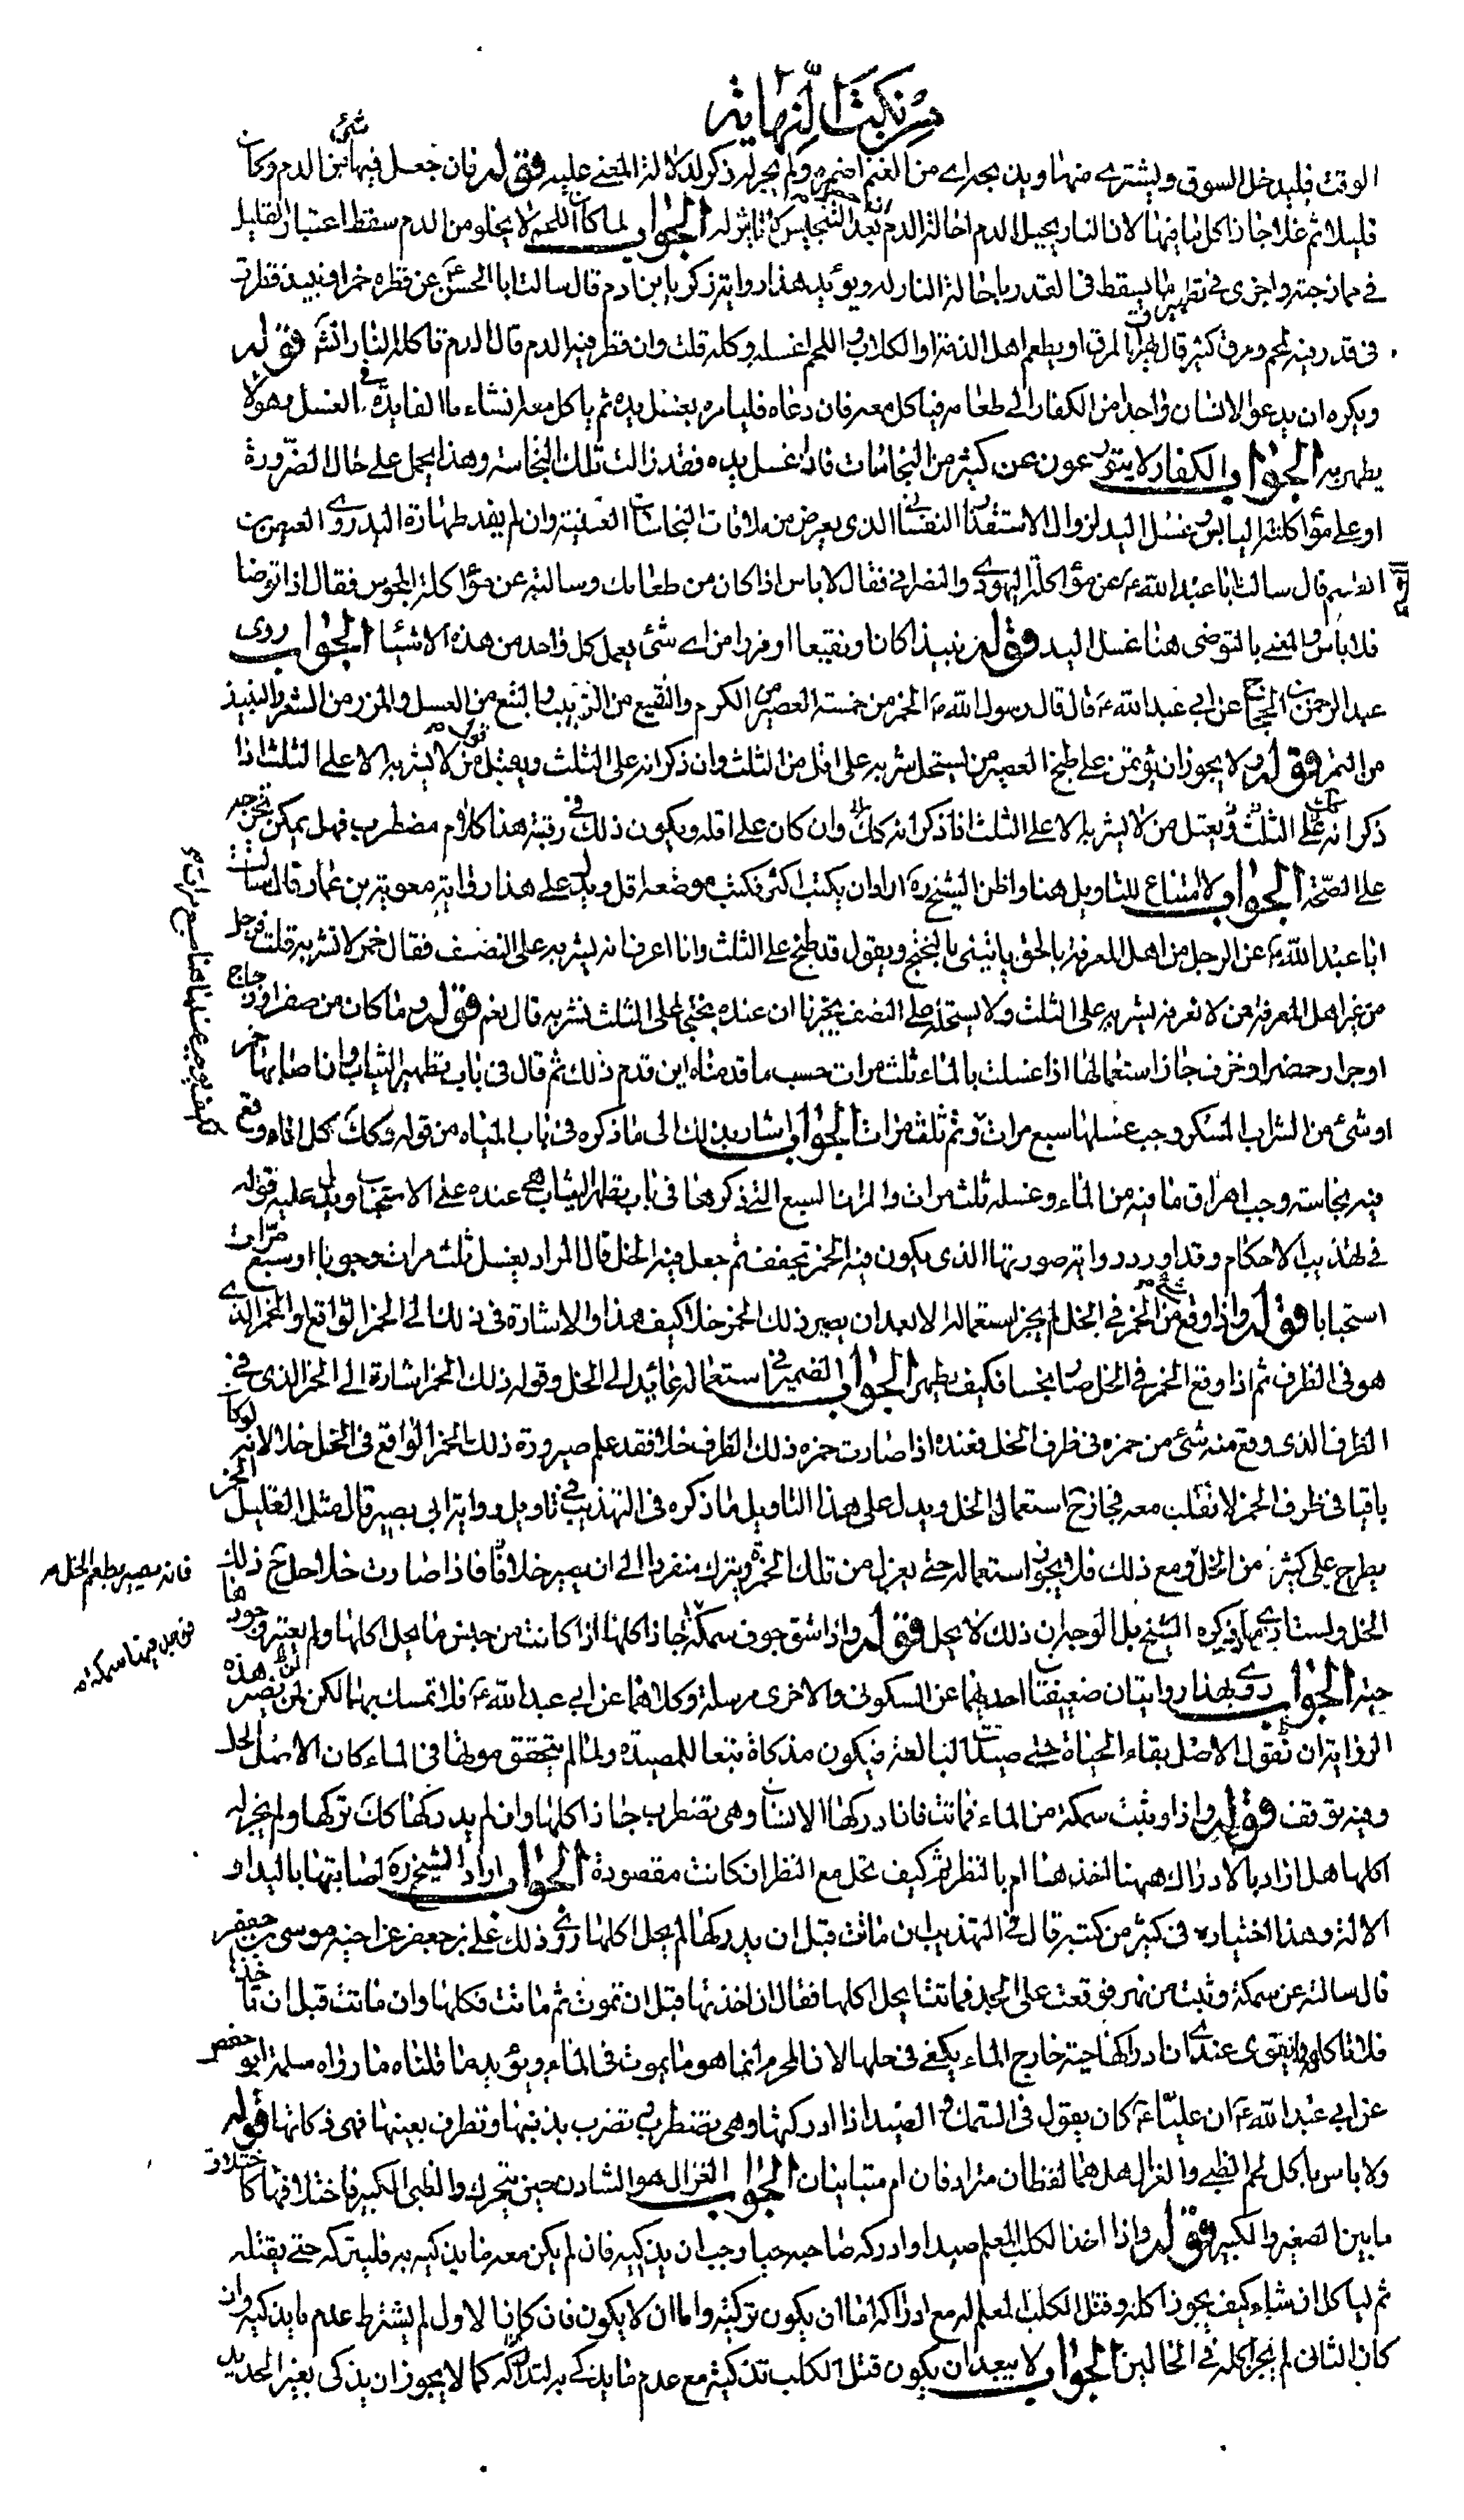 نكت النهاية
الوقت فليدخل السوق وليشتري منها ويذبحه اي من الغنم ولم يجز له ذكر لدلالة المعنى عليه قوله فان جعل فيها شئ من الدم وكان
قليلا ثم غلا جاز اكل ما فيها لان النار يحيل الدم احالة الدم بعد التنجيس لا تأثير له الجواب لما كان اللحم لا يخلو من الدم سقط اعتبار القليل
في ممازجته واجرى في تطهيره ما يسقط في القدر باحالة النار له ويؤيد هذا رواية زكريا بن ادم قال سالت ابا الحسن ع عن قطرة خمر او نبيذ قطرت
في قدر فيه لحم ومرق كثير قال يهراق المرق او يطعم اهل الذمة او الكلاب واللحم اغسله وكله قلت وان قطر فيه الدم قال الدم تاكله النار انشء قوله
ويكره ان يدعو الانسان واحدا من الكفار الى طعامه فياكل معه فان دعاه فليامره بغسل يده ثم ياكل معه انشاء ما الفايدة في الغسل وهو لا
يطهر به الجواب الكفار لا يتورعون عن كثير من النجاسات فاذا غسل يده فقد زالت تلك النجاسة وهذا يحمل على حال الضرورة
او على مؤاكلة اليابس وغسل اليد لزوال الاستقذار النفساني الذي يعرض من ملاقات النجاسات العينية وان لم يفد طهارة اليد روى العيص بن
القاسم قال سالت ابا عبد الله ع عن مؤاكلة اليهودي والنصراني فقال لا باس اذا كان من طعامك وسالته عن مؤاكلة المجوس فقال اذا توضا
فلا باس والمعنى بالتوضى هنا غسل اليد قوله نبيذا كان او نقيعا او مزرا من اي شئ يعمل كل واحد من هذه الاشيا الجواب روى
عبد الرحمن بن الحجاج عن ابي عبد الله ع قال قال رسول الله ص الخمر من خمسة العصير من الكرم والنقيع من الزبيب والبتع من العسل والمزر من الشعير والنبيذ
من التمر قوله ولا يجوز ان يؤتمن على طبخ العصير من يستحل شربه على اقل من الثلث وان ذكر انه على الثلث ويقبل قول من لا يشربه الا على الثلث اذا
ذكر انه كان على الثلث ويقبل من لا يشربه الا على الثلث اذا ذكر انه كك وان كان على اقله ويكون ذلك في رقبته هذا كلام مضطرب فهل يمكن تخريجه
على الصحة الجواب لا امتناع للتاويل هنا واظن الشيخ ره اراد ان يكتب اكثر فكتب موضعه اقل ويدل على هذا رواية معوية بن عمار قال سالت
ابا عبد الله ع عن الرجل من اهل المعرفة بالحق ياتينى بالبختج ويقول قد طبخ على الثلث وانا اعرف انه يشربه على النصف فقال خمر لا تشربه قلت فرجل
من غير اهل المعرفة ممن لا نعرفه يشربه على الثلث ولا يستحله على النصف يخبرنا ان عنده بختجا على الثلث نشربه قال نعم قوله وما كان من صفر او زجاج
او جرار خضر او خزف جاز استعمالها اذا غسلت بالماء ثلث مرات حسب ما قدمناه اين قدم ذلك ثم قال في باب تطهير الثياب وان اصابها خمر
او شئ من الشراب المسكر وجب غسلها سبع مرات وثم ثلث مرات الجواب اشار بذلك الى ما ذكره في باب المياه من قوله وكك كل اناء وقع
فيه نجاسة وجب اهراق ما فيه من الماء وغسله ثلث مرات والمرات السبع التي ذكرها في باب تطهير الثياب هي عنده على الاستحباب ويدل عليه قوله
في تهذيب الاحكام وقد اورد رواية صورتها الذي يكون فيه الخمر تجفف ثم جعل فيه الخل قال المراد يغسل ثلث مرات وجوبا او سبع مرات
استحبابا قوله واذا وقع شئ من الخمر في الخل لم يجز استعماله الا بعد ان يصير ذلك الخمر خلا كيف هذا والاشارة في ذلك الى الخمر الواقع او الخمر الذي
هو في الظرف ثم اذا وقع الخمر في الخل صار نجسا فكيف يطهر الجواب الضمير في استعماله عائد الى الخل وقوله ذلك الخمر اشارة الى الخمر الذي في
الظرف الذي وقع منه شئ من خمره في ظرف الخل فعنده اذا صارت خمره ذلك الظرف خلا فقد علم صيرورة ذلك الخمر الواقع في الخل خلا لانه لو كان
باقيا في ظرف الخمر لانقلب معه فجاز ح استعمال الخل ويدل على هذا التاويل ما ذكره في التهذيب في تاويل رواية ابي بصير قال مثل القليل الخمر
يطرح على كثير من الخل ومع ذلك فلا يجوز استعماله حتى يعزل من تلك الخمرة ويترك منفردا الى ان يصير خلا فاذا صارت خلا احل ح ذلك
فانه يصير بطعم الخل
الخل ولست ارى ما ذكره الشيخ بل الوجه ان ذلك لا يحل قوله واذا شق جوف سمكة جاز اكلها اذا كانت من جنس ما يحل اكلها ولم يعتبر خروجها
فوجد فيها سمكة
حية الجواب روى بهذا روايتان ضعيفتان احديهما عن السكوني والاخرى مرسلة وكلاهما عن ابي عبد الله ع فلا تمسك بهما لكن لمن نصر هذه
الرواية ان نقول الاصل بقاء الحياة حتى صيدت البالعة فيكون مذكاة تبعا للمصيدة ولما لم يتحقق موتها في الماء كان الاصل الحل
وفيه توقف قوله واذا وثبت سمكة من الماء فماتت فان ادركها الانسان وهي تضطرب جاز اكلها وان لم يدركها كك تركها ولم يجز له
اكلها هل اراد بالادراك ههنا اخذها ام بالنظر ثم كيف تحل مع النظر ان كانت مقصودة الجواب اراد الشيخ ره اصابتها باليد او
الالة وهذا اختياره في كثير من كتبه قال في التهذيب ان ماتت قبل ان يدركها لم يحل اكلها روى ذلك علي بن جعفر عن اخيه موسى بن جعفر
قال سالته عن سمكة وثبت من نهر فوقعت على الجد فماتت ايحل اكلها فقال ان اخذتها قبل ان تموت ثم ماتت فكلها وان ماتت قبل ان تاخذها
فلا تاكلها والذي يقوى عندي ان ادراكها حية خارج الماء يكفي في حلها لان المحرم انما هو ما يموت في الماء ويؤيد ما قلناه ما رواه سلمة ابو حفص
عن ابي عبد الله ع ان عليا ع كان يقول في السمك والصيد اذا ادركتها وهي تضطرب تضرب بذنبها وتطرف بعينها فهي ذكاتها قوله
ولا باس باكل لحم الظبي والغزال هل هما لفظان مترادفان ام متباينان الجواب الغزال هو الشادن حين يتحرك والظبي الكبير فاختلافهما كاختلاف
ما بين الصغير والكبير قوله واذا اخذ الكلب المعلم صيدا وادركه صاحبه حيا وجب ان يذكيه فان لم يكن معه ما يذكيه به فليتركه حتى يقتله
ثم لياكل ان شاء كيف يجوز اكله وقتل الكلب المعلم له مع ادراكه اما ان يكون تزكية واما ان لا يكون فان كان الاول لم يشترط عدم ما يذكيه وان
كان الثاني لم يجز اكله في الحالين الجواب لا يبعد ان يكون قتل الكلب تذكية مع عدم ما يذكى به كما لا يجوز ان يذكى بغير الحديد